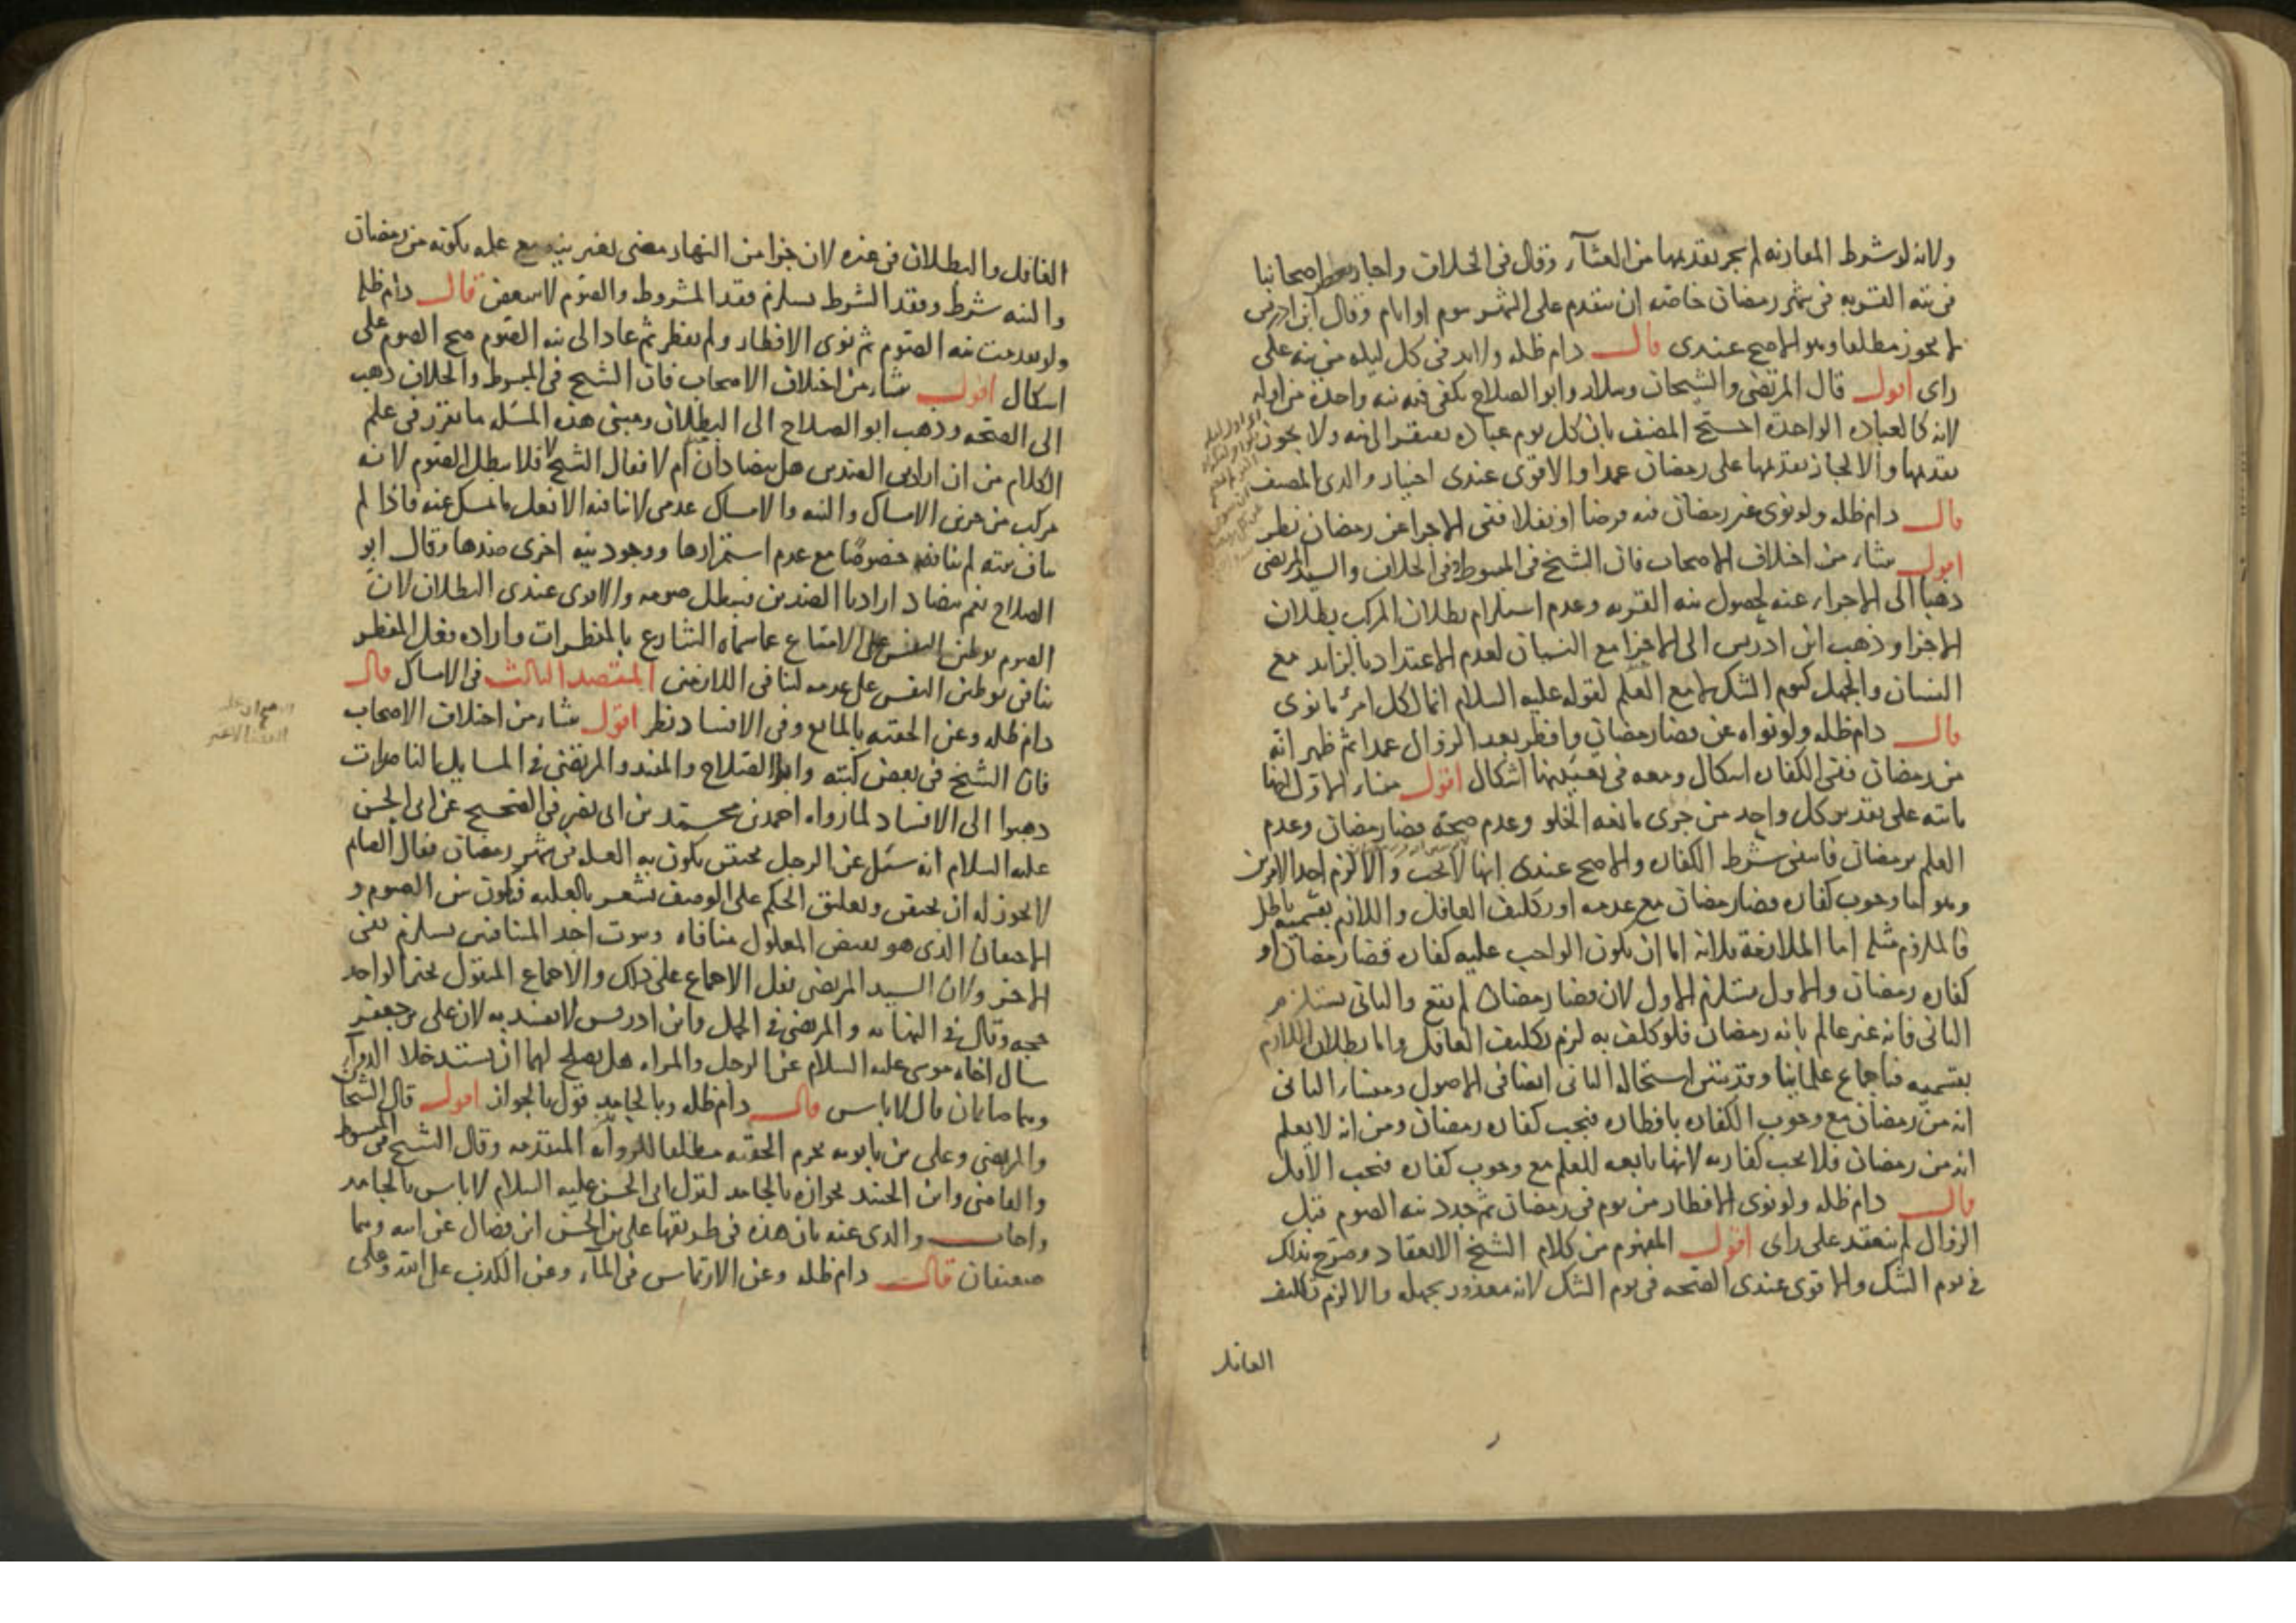 ولانه لو شرط المقارنه لم يجز تقديمها من العشآء وقال فى الخلاف واجاز بعض اصحابنا
فى نيه القربه فى شهر رمضان خاصه ان يتقدم على الشهر بيوم او ايام وقال ابن ادريس
لا يجوز مطلقا وهو الاصح عندى قال دام ظله ولابد فى كل ليله من نيه على
راى اقول قال المرتضى والشيخان وسلار وابو الصلاح يكفى فيه نيه واحدة من اوله
لانه كالعباده الواحدة احتج المصنف بان كل يوم عباده يفتقر الى نيه ولا يجوز
تقديمها والا لجاز تقديمها على رمضان عمدا والاقوى عندى اختيار والدى المصنف
قال دام ظله ولو نوى غير رمضان فيه فرضا او نفلا ففى الاجزا عن رمضان نظر
اقول منشاء من اختلاف الاصحاب فان الشيخ فى المبسوط وفى الخلاف والسيد المرتضى
ذهبا الى الاجزاء عنه لحصول نيه القربه وعدم استلزام بطلان المركب بطلان
الاجزا وذهب ابن ادريس الى الاجزا مع النسيان لعدم الاعتداد بالزايد مع
النسيان والجهل كيوم الشك لا مع العلم لقوله عليه السلام انما لكل امرئ ما نوى
قال دام ظله ولو نواه عن قضا رمضان وافطر بعد الزوال عمدا ثم ظهر انه
من رمضان ففى الكفاره اشكال ومعه فى تعيينها اشكال اقول منشاء الاول انها
مانته على تقدير كل واحد من جزى مانعه الخلو وعدم صحة قضا رمضان وعدم
العلم برمضان فانتفى شرط الكفاره والاصح عندى انها لا تجب والا لزم احد الامرين
وهو اما وجوب كفاره قضا رمضان مع عدمه او تكليف الغافل واللازم بقسميه باطل
فالملزوم مثله اما الملازمة فلانه اما ان يكون الواجب عليه كفاره قضا رمضان او
كفاره رمضان والاول يستلزم الاول لان قضا رمضان لم يقع والثانى يستلزم
الثانى فانه غير عالم بانه رمضان فلو كلف به لزم تكليف الغافل واما بطلان اللازم
بقسميه فباجماع علمائنا وقد بينى استحاله الثانى ايضا فى الاصول ومنشاء الثانى
انه من رمضان مع وجوب الكفاره بافطاره فيجب كفاره رمضان ومن انه لا يعلم
انه من رمضان فلا يجب كفارته لانها تابعه للعلم مع وجوب كفاره فيجب الاقل
قال دام ظله ولو نوى الافطار من يوم فى رمضان ثم جدد نيه الصوم قبل
الزوال لم ينعقد على راى اقول المفهوم من كلام الشيخ الانعقاد وصرح بذلك
فى يوم الشك والاقوى عندى الصحه فى يوم الشك لانه معذور بجهله والا لزم تكليف
الغافل
الغافل والبطلان فى غيره لان جزا من النهار مضى بغير نيه مع علمه بكونه من رمضان
والنيه شرط وفقد الشرط يستلزم فقد المشروط والصوم لا يتبعض قال دام ظله
ولو تقدمت نيه الصوم ثم نوى الافطار ولم يفطر ثم عاد الى نيه الصوم صح الصوم على
اشكال اقول منشاء من اختلاف الاصحاب فان الشيخ فى المبسوط والخلاف ذهب
الى الصحه وذهب ابو الصلاح الى البطلان ومبنى هذه المسئله ما تقرر فى علم
الكلام من ان ارادتى الضدين هل يتضادان ام لا فقال الشيخ لا فلا يبطل الصوم لانه
مركب من جزئى الامساك والنيه والامساك عدمى لا ينافيه الا فعل ما يمسك عنه فاذا لم
يناف نيته لم ينافه خصوصًا مع عدم استمرارها ووجود نيه اخرى ضدها وقال ابو
الصلاح نعم يتضاد ارادتا الضدين فيبطل صومه والاقوى عندى البطلان لان
الصوم توطين النفس على الامتناع عما سماه الشارع بالمفطرات واراده فعل المفطر
ينافى توطين النفس على عدمه لتنافى اللازمين المقصد الثالث فى الامساك قال
دام ظله وعن الحقنه بالمايع وفى الافساد نظر اقول منشاء من اختلاف الاصحاب
فان الشيخ فى بعض كتبه وابو الصلاح والمفيد والمرتضى فى المسايل الناصرات
ذهبوا الى الافساد لما رواه احمد بن محمد بن ابى نصر فى الصحيح عن ابى الحسن
عليه السلام انه سئل عن الرجل يحتقن يكون به العله فى شهر رمضان فقال الصايم
لا يجوز له ان يحتقن وتعليق الحكم على الوصف يشعر بالعليه فيكون بين الصوم و
الاحتقان الذى هو نقيض المعلول منافاه وثبوت احد المتنافيين يستلزم نفى
الاخر ولان السيد المرتضى نقل الاجماع على ذلك والاجماع المنقول بخبر الواحد
حجه وقال فى النهايه والمرتضى فى الجمل وابن ادريس لا يفسد به لان على بن جعفر
سال اخاه موسى عليه السلام عن الرجل والمراه هل يصلح لهما ان يستدخلا الدواء
وهما صايمان قال لا باس قال دام ظله وبالجامد قول بالجواز اقول قال الشيخان
والمرتضى وعلى بن بابويه يحرم الحقنه مطلقا للروايه المتقدمه وقال الشيخ فى المبسوط
والقاضى وابن الجنيد بجوازه بالجامد لقول ابى الحسن عليه السلام لا باس بالجامد
واجاب والدى عنه بان هذه فى طريقها على بن الحسن ابن فضال عن ابيه وهما
ضعيفان قال دام ظله وعن الارتماس فى المآء وعن الكذب على الله وعلى